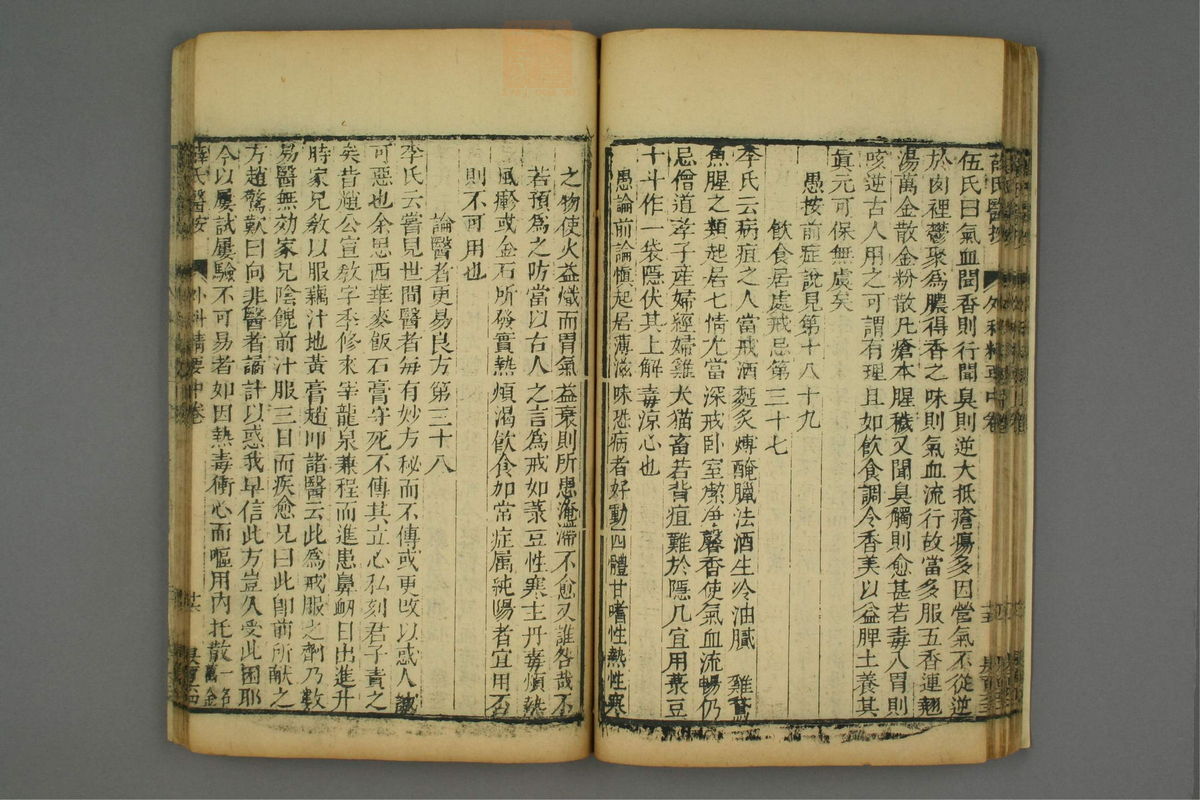 伍氏曰氣血聞香則行聞臭則逆大抵瘡瘍多因營氣不從逆
於肉裡鬱聚爲膿得香之味則氣血流行故當多服五香連翹
湯萬金散金粉散凡瘡本腥穢又聞臭觸則愈甚若毒入胃則
咳逆古人用之可謂有理且如飲食調令香美以益脾土養其
眞元可保無虞矣
愚按前症說見第十八十九
飲食居處戒忌第三十七
李氏云病疽之人當戒酒麵炙煿醃臘法酒生冷油膩 雞鵞
魚腥之類起居七情尤當深戒臥室潔净馨香使氣血流暢仍
忌僧道孝子產婦經婦雞犬猫畜若背疽難於隱几宜用菉豆
十斗作一袋隱伏其上解毒涼心也
愚論前論愼起居薄滋味恐病者好動四體甘嗜性熱性寒
之物使火益熾而胃氣益衰則所患淹滯不愈又誰咎哉不
若預爲之防當以古人之言爲戒如菉豆性寒主丹毒煩熱
風癬或金石所發實熱煩渴飲食如常症属純陽者宜用否
則不可用也
論醫者更易良方第三十八
李氏云嘗見世間醫者每有妙方秘而不傳或更改以惑人誠
可惡也余思西華麥飯石膏守死不傳其立心私刻君子責之
矣昔趙公宣敎字季修來宰龍泉兼程而進患鼻衂日出進升
時家兄敎以服藕汁地黃膏趙帀諸醫云此爲戒服之劑乃數
易醫無効家兄陰餽前汁服三日而疾愈兄曰此卽前所献之
方趙驚歎曰向非醫者譎計以惑我早信此方豈久受此困耶
今以屢試屢驗不可易者如因熱毒衝心而嘔用內托散萬金一名
薛氏醫按 外科精要中卷